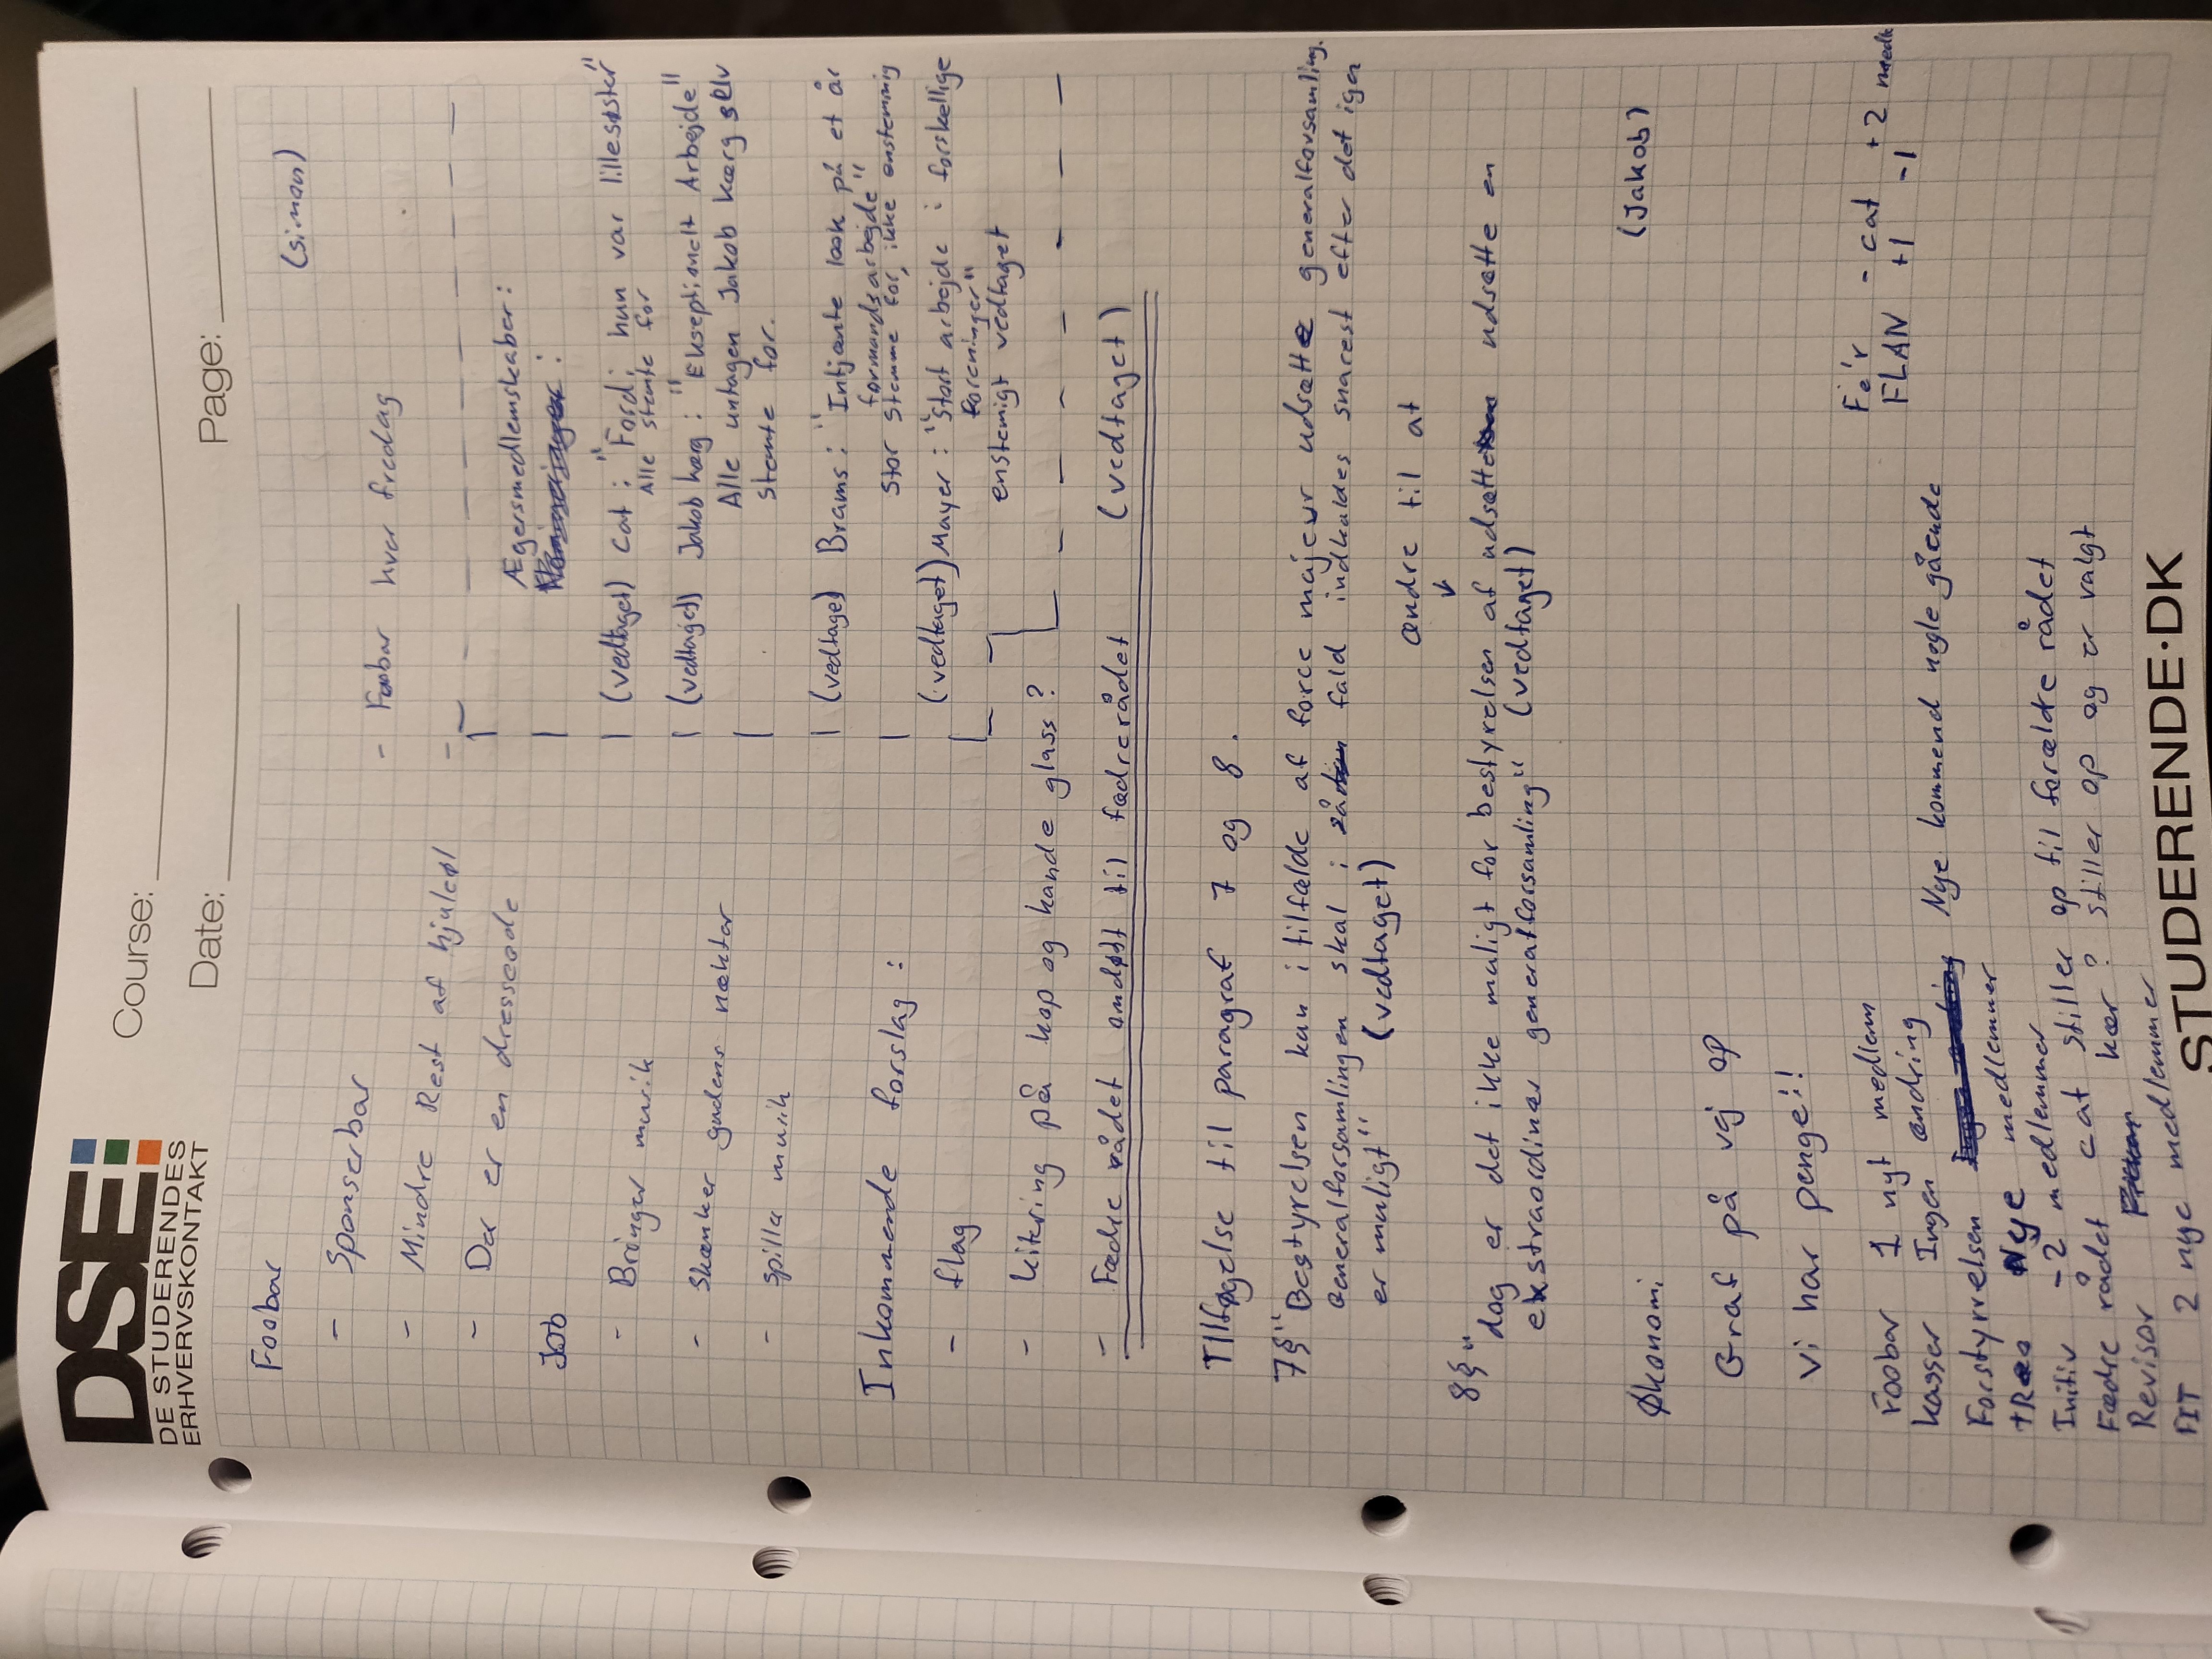 DSE
DE STUDERENDES
ERHVERVSKONTAKT
Course:
Date:
Page:
Foobar
(simon)
- Sponserbar
- Foobar hver fredag
- Mindre Rest af hjuleøl
- Der er en dresscode
Ægersmedlemskaber:
Job
- Bringer musik
(vedtaget) Cat: "Fordi hun var lillesøster"
Alle stemte for
- Skænker gudens nektar
(vedtaget) Jakob hærg: "Ekseptionelt Arbejde"
Alle untagen Jakob kærg selv
stemte for.
- spille musik
(vedtaget) Brams: "Intjænte look på et år
formandsarbejde"
Inkommende forslag:
stor stemme for, ikke enstemmig
- flag
(vedtaget) Mayer: "stort arbejde i forskellige
foreninger"
enstemigt vedtaget
- kitering på kop og kande glass?
- Fædre rådet omdøbt til fædrerådet (vedtaget)
Tilføgelse til paragraf 7 og 8.
7§ "Bestyrelsen kan i tilfælde af force majeur udsætte generalforsamling.
Generalforsamlingen skal i fald indkaldes snarest efter det igen
er muligt" (vedtaget)
ændre til at
8§ "dog er det ikke muligt for bestyrelsen af udsætte udsætte en
ekstraordinær generalforsamling" (vedtaget)
Økonomi
(Jakob)
Graf på vej op
Vi har penge!!
Foobar 1 nyt medlem
Kasser Ingen ændring
Forstyrrelsen Nye kommend nogle gående
Nye medlemmer
Initiv -2 medlemmer
Fædre rådet cat stiller op til forældre rådet
Revisor kær? stiller op og er valgt
FIT 2 nye medlemmer
Fe'r - cat +2
FLAN +1 -1
STUDERENDE·DK